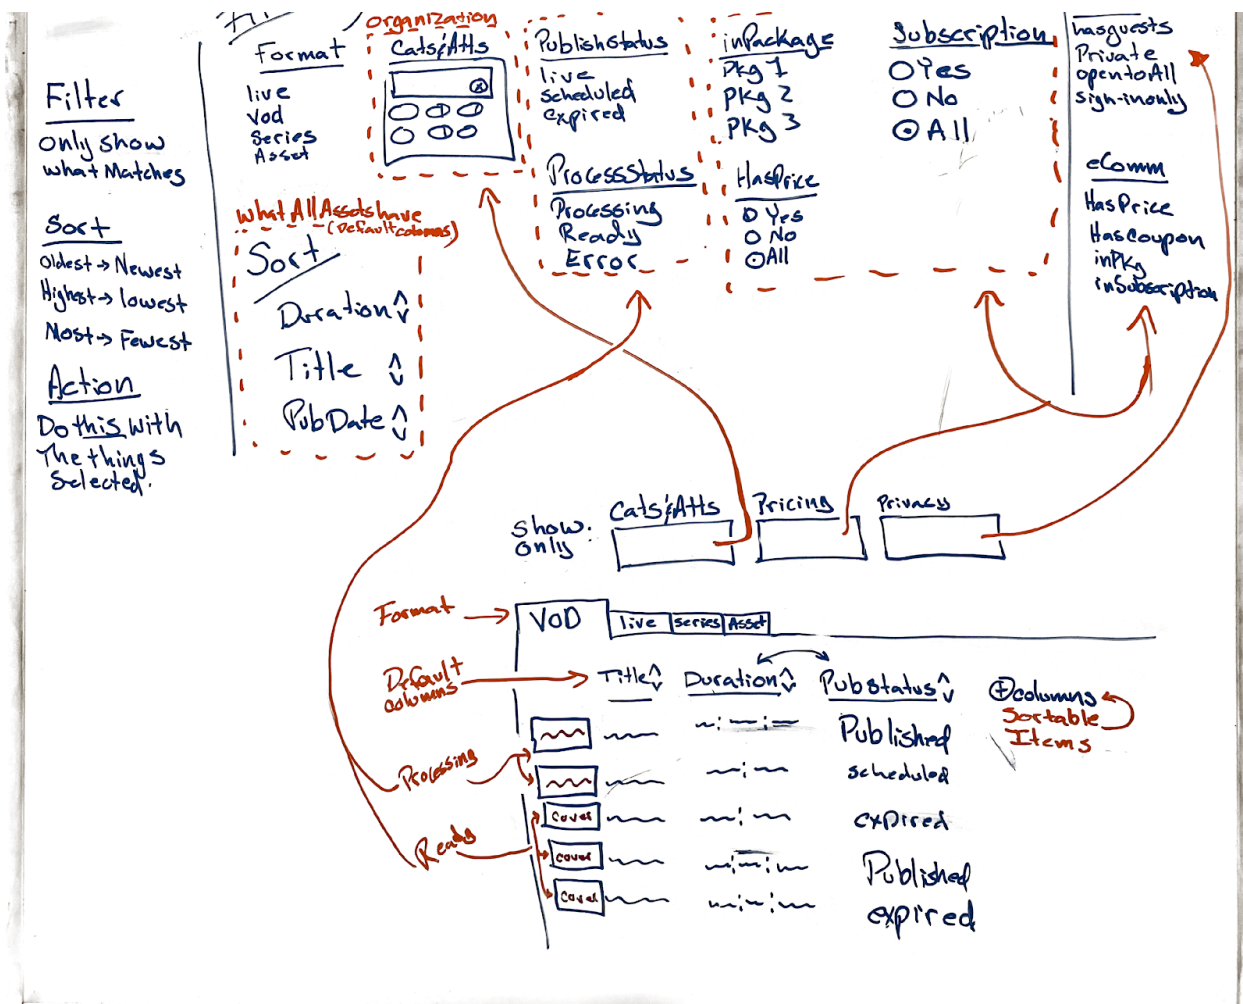 Filter
only show
what Matches
Sort
Oldest → Newest
Highest → lowest
Most → Fewest
Action
Do this with
The things
Selected.
Format
live
Vod
Series
Asset
organization
Cats&Atts
PublishStatus
live
Scheduled
expired
ProcessStatus
Processing
Ready
Error
inPackage
Pkg 1
PKg 2
PKg 3
HasPrice
Yes
No
All
Subscription
Yes
No
All
hasguests
Private
opentoAll
sign-inonly
eComm
HasPrice
HasCoupon
inPKg
inSubscription
what All Assets have
(Default columns)
Sort
Duration
Title
PubDate
Show:
only
Cats&Atts
Pricing
Privacy
Format
VOD
live
series
Asset
Default
columns
Title
Duration
PubStatus
+columns
Sortable
Items
Processing
Published
scheduled
Ready
cover
expired
cover
Published
cover
expired